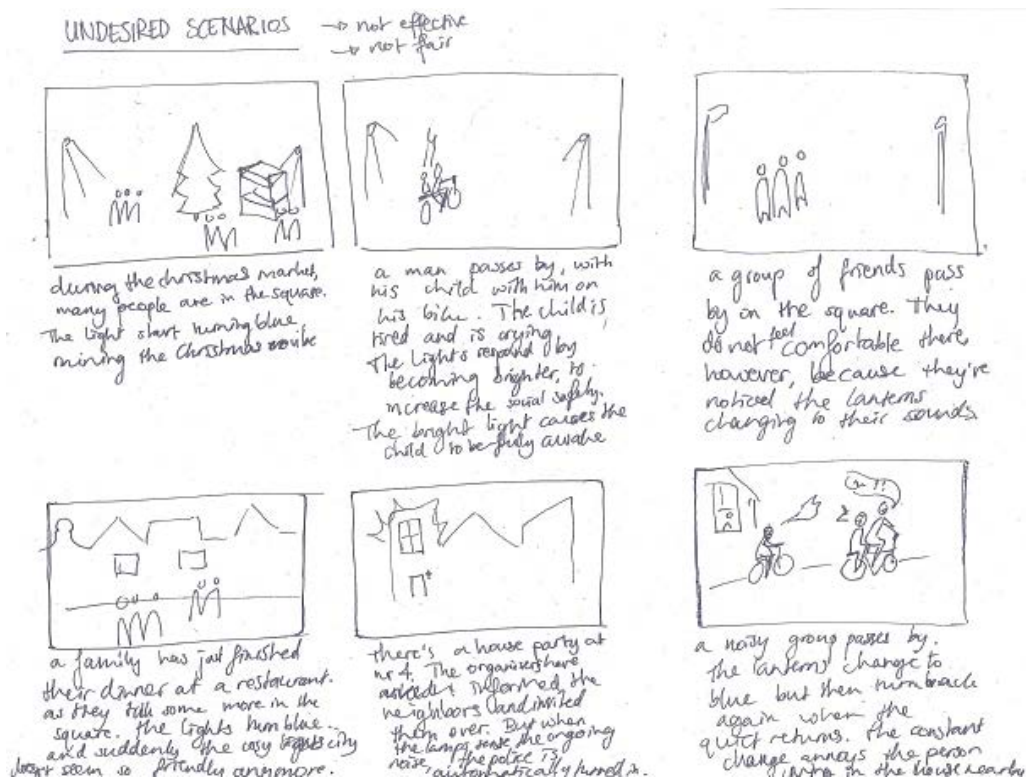 UNDESIRED SCENARIOS → not effective
→ not fair
during the christmas market,
many people are in the square.
The light start turning blue,
ruining the Christmas
a man passes by, with
his child with him on
his bike. The child is
tired and is crying.
The lights respond by
becoming brighter, to
increase the social safety.
The bright light causes the
child to be fully awake
a group of friends pass
by on the square. They
do not feel comfortable there,
however, because they're
noticed the lanterns
changing to their sounds
a family has just finished
their dinner at a restaurant.
as they talk some more in the
square. the lights turn blue.
and suddenly the cosy city
doesn't seem so friendly anymore.
there's a house party at
nr 4. The organisers have
informed the
neighbors and invited
them over. But when
the lamps sense the ongoing
noise, the police is
automatically turned in.
a noisy group passes by.
the lanterns change to
blue but then turn back
again when the
quiet returns. the constant
change annoys the person
in the house nearby